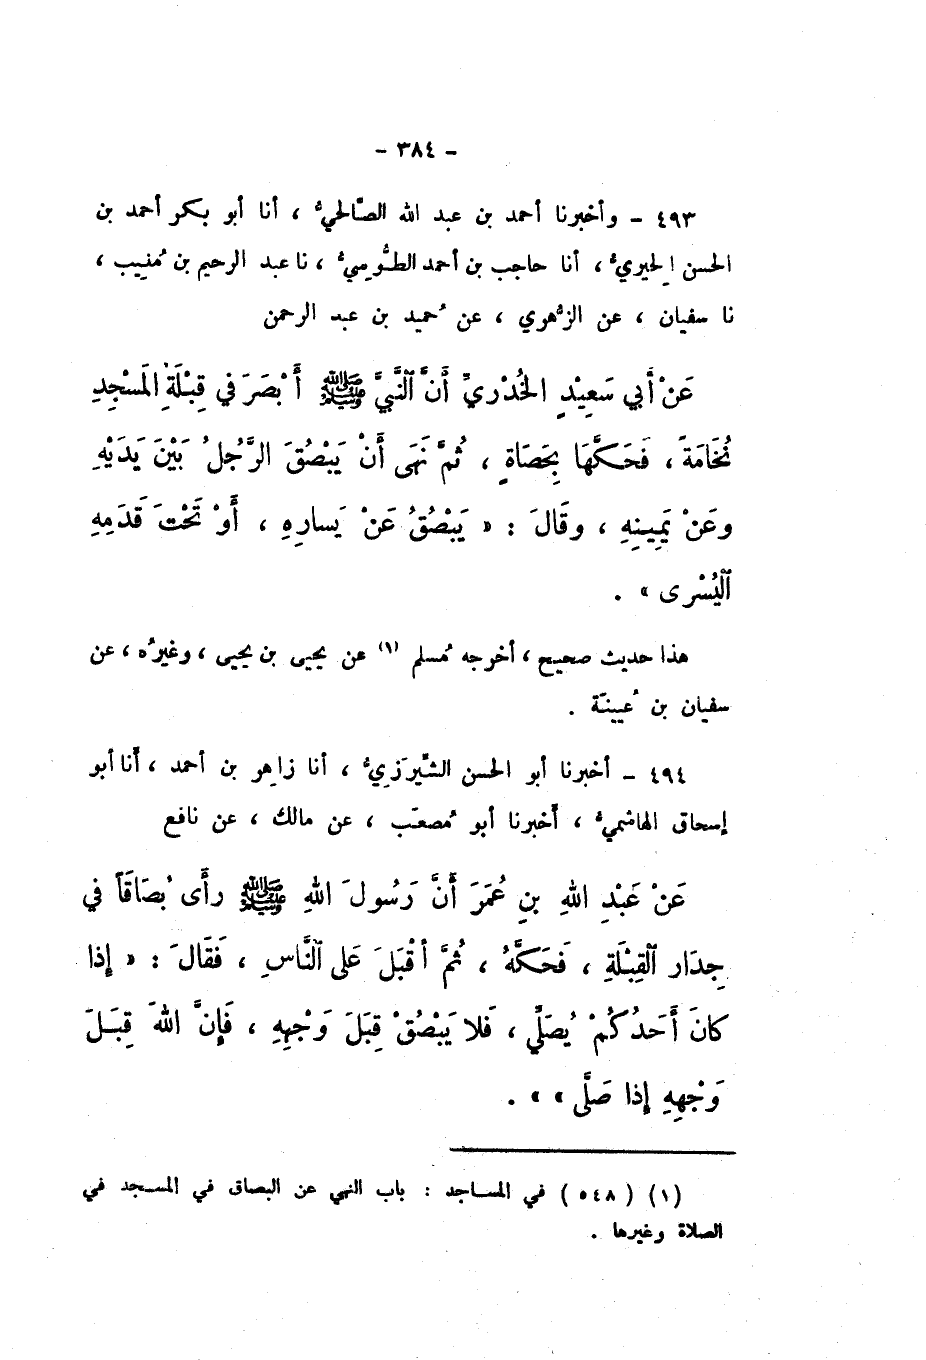 - ٣٨٤ -
٤٩٣ - وأخبرنا أحمد بن عبد الله الصَّالحيُّ ، أنا أبو بكر أحمد بن
الحسن الحِيريُّ ، أنا حاجب بن أحمد الطُّوسِيُّ ، نا عبد الرحيم بن مُنِيب ،
نا سفيان ، عن الزُّهري ، عن حُميد بن عبد الرحمن
عَنْ أَبي سَعِيْدٍ الخُدْريِّ أَنَّ ٱلنَّبيَّ ﷺ أَبْصَرَ في قِبْلَةِ المَسْجِدِ
نُخَامَةً ، فَحَكَّهَا بِحَصَاةٍ ، ثُمَّ نَهَى أَنْ يَبْصُقَ الرَّجُلُ بَيْنَ يَدَيْهِ
وعَنْ يَمِينِهِ ، وقَالَ : « يَبْصُقُ عَنْ يَسارِهِ ، أَوْ تَحْتَ قَدَمِهِ
ٱليُسْرى » .
هذا حديث صحيح ، أخرجه مُسلم (١) عن يحيى بن يحيى ، وغيرُه ، عن
سفيان بن عُيينَة .
٤٩٤ - أخبرنا أبو الحسن الشِّيرَزِيُّ ، أنا زاهِر بن أحمد ، أنا أبو
إسحاق الهاشميُّ ، أخبرنا أبو مُصعَب ، عن مالك ، عن نافع
عَنْ عَبْدِ اللهِ بنِ عُمَرَ أَنَّ رَسُولَ اللهِ ﷺ رأَى بُصَاقَاً في
جِدَار ٱلقِبْلَةِ ، فَحَكَّهُ ، ثُمَّ أَقْبَلَ عَلى ٱلنَّاسِ ، فَقَالَ : « إِذا
كانَ أَحَدُكُمْ يُصَلِّي ، فَلا يَبْصُقْ قِبَلَ وَجْهِهِ ، فَإِنَّ اللهَ قِبَلَ
وَجْهِهِ إِذا صَلَّى » » .
(١) ( ٥٤٨ ) في المساجد : باب النهي عن البصاق في المسجد في
الصلاة وغيرها .